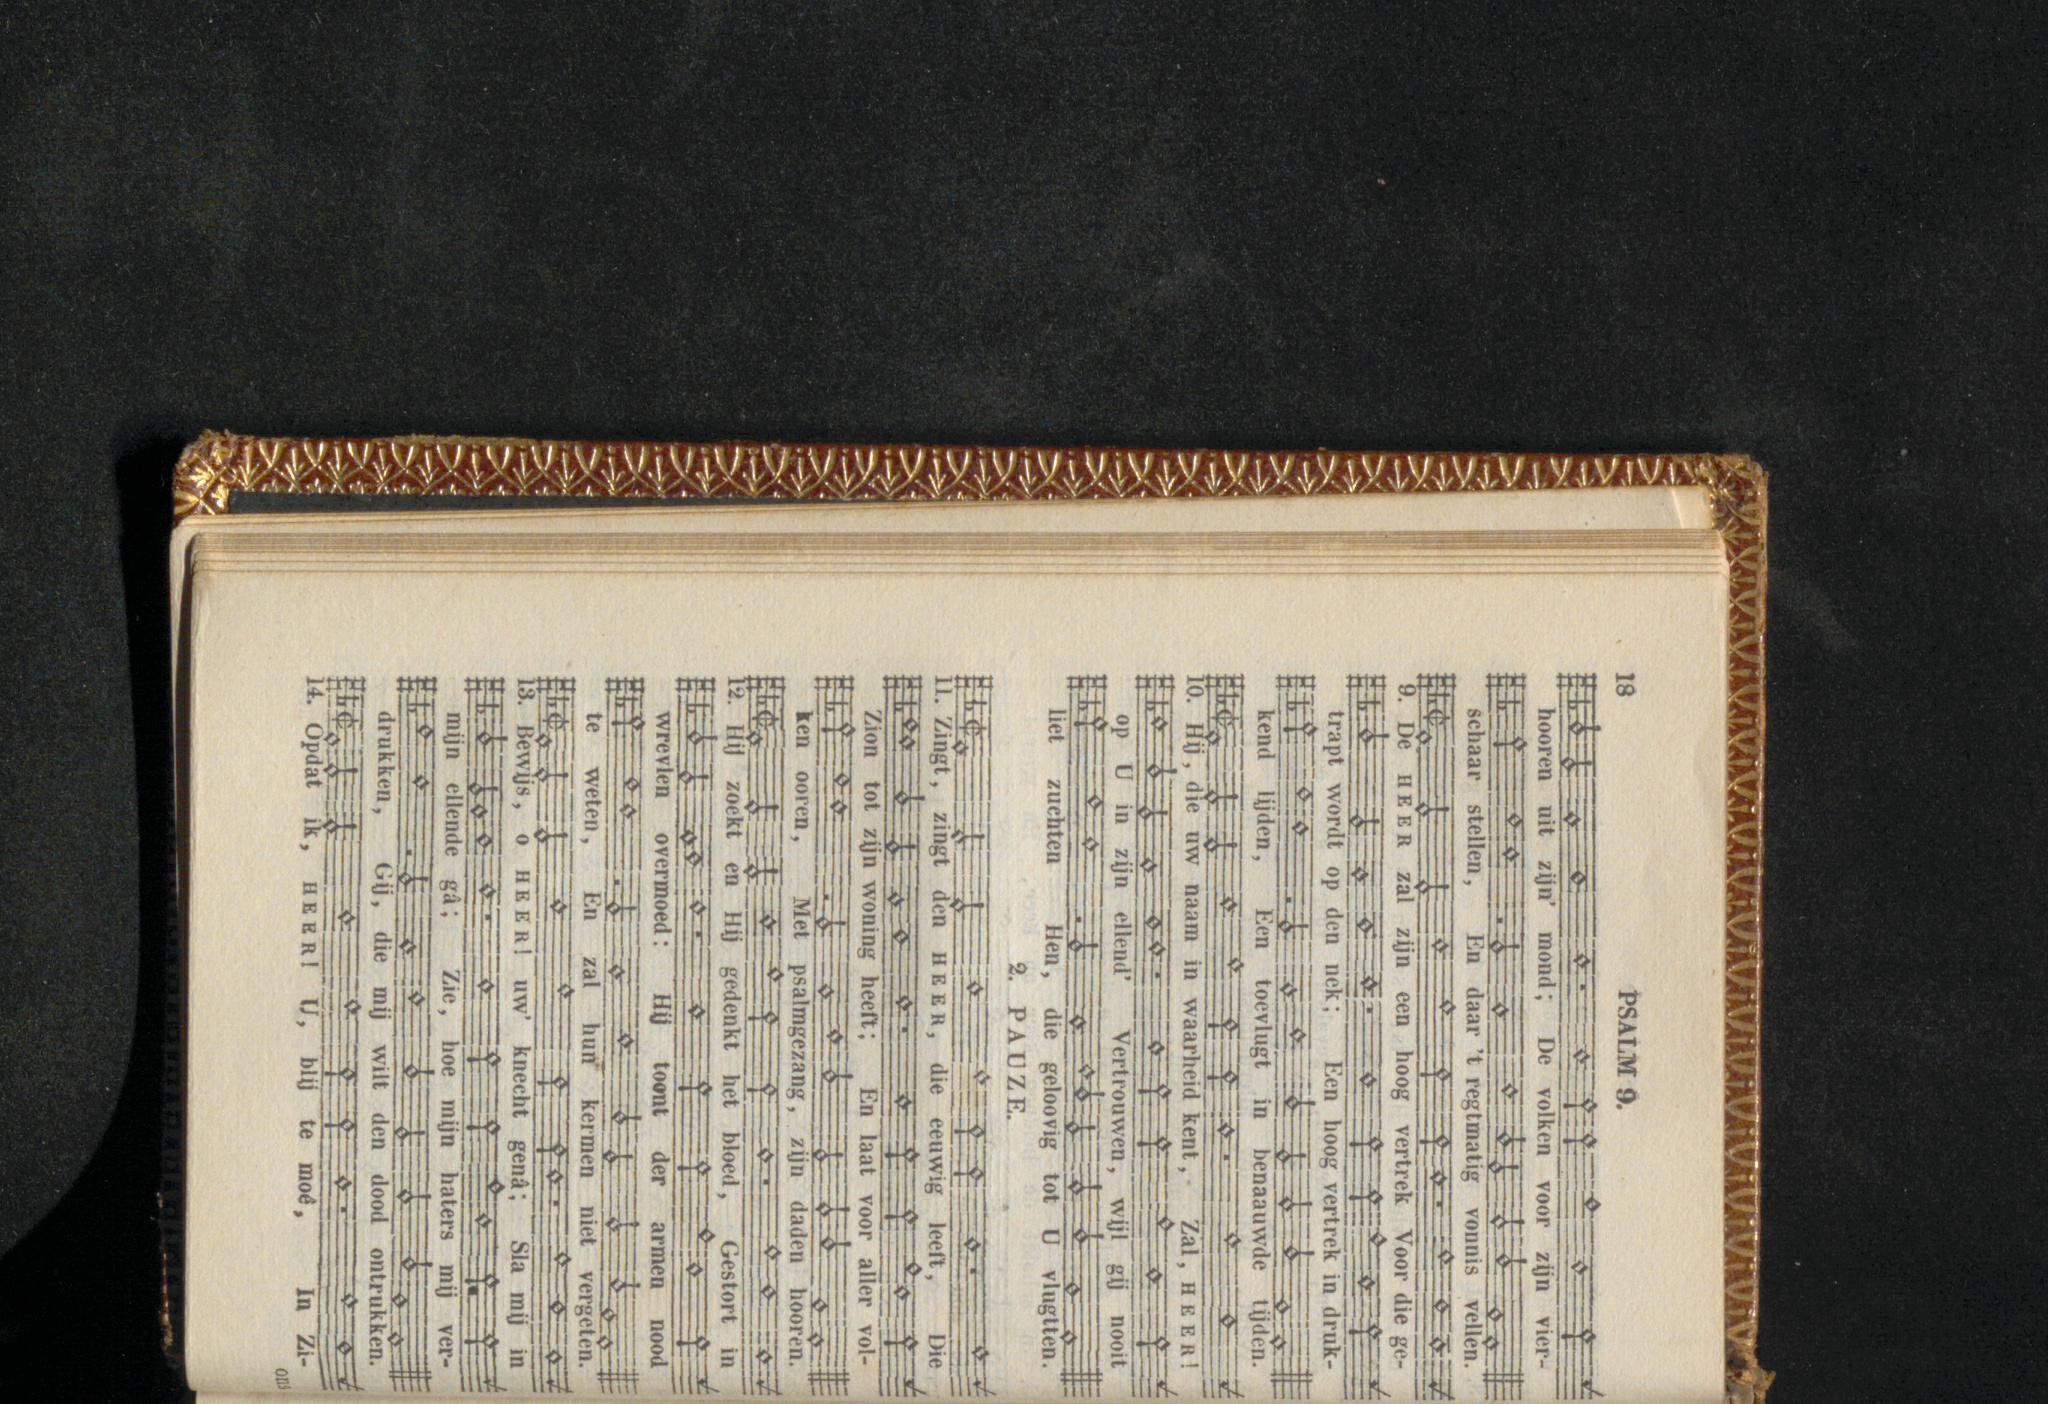 18
PSALM 9.
hooren uit zijn' mond; De volken voor zijn vier-
schaar stellen, En daar 't regtmatig vonnis vellen.
9. De HEER zal zijn een hoog vertrek Voor die ge-
trapt wordt op den nek; Een hoog vertrek in druk-
kend lijden, Een toevlugt in benaauwde tijden.
10. Hij, die uw naam in waarheid kent, Zal, HEER!
op U in zijn ellend' Vertrouwen, wijl gij nooit
liet zuchten Hen, die geloovig tot U vlugtten.
2. PAUZE.
11. Zingt, zingt den HEER, die eeuwig leeft, Die
Zion tot zijn woning heeft; En laat voor aller vol-
ken ooren, Met psalmgezang, zijn daden hooren.
12. Hij zoekt en Hij gedenkt het bloed, Gestort in
wrevlen overmoed: Hij toont der armen nood
te weten, En zal hun kermen niet vergeten.
13. Bewijs, o HEER! uw' knecht genâ; Sla mij in
mijn ellende gâ; Zie, hoe mijn haters mij ver-
drukken, Gij, die mij wilt den dood ontrukken.
14. Opdat ik, HEER! U, blij te moê, In Zi-
ons